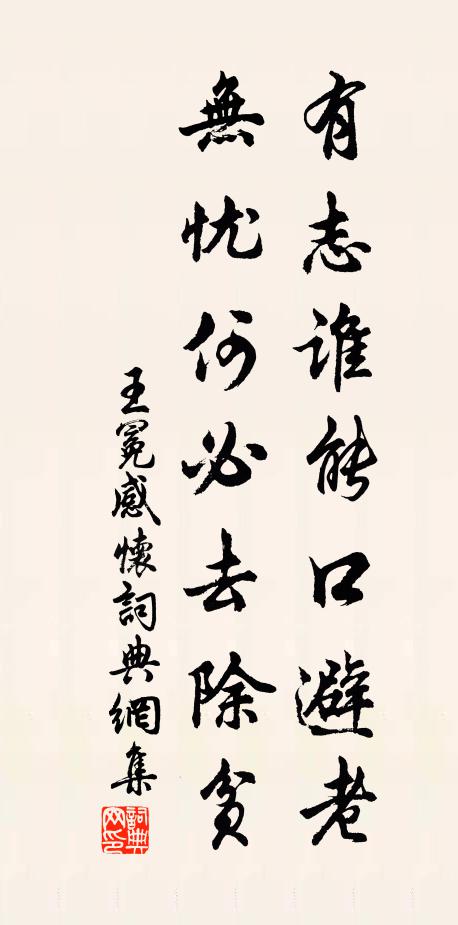 有志谁能口避老
無忧何必去除贫
王冕感懷詞典網集
詞典网印